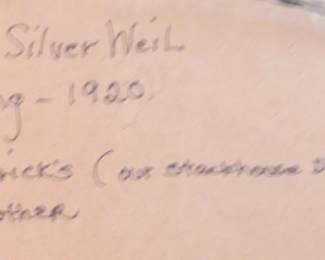 Silver Weil
g - 1920
rick's ( our
other